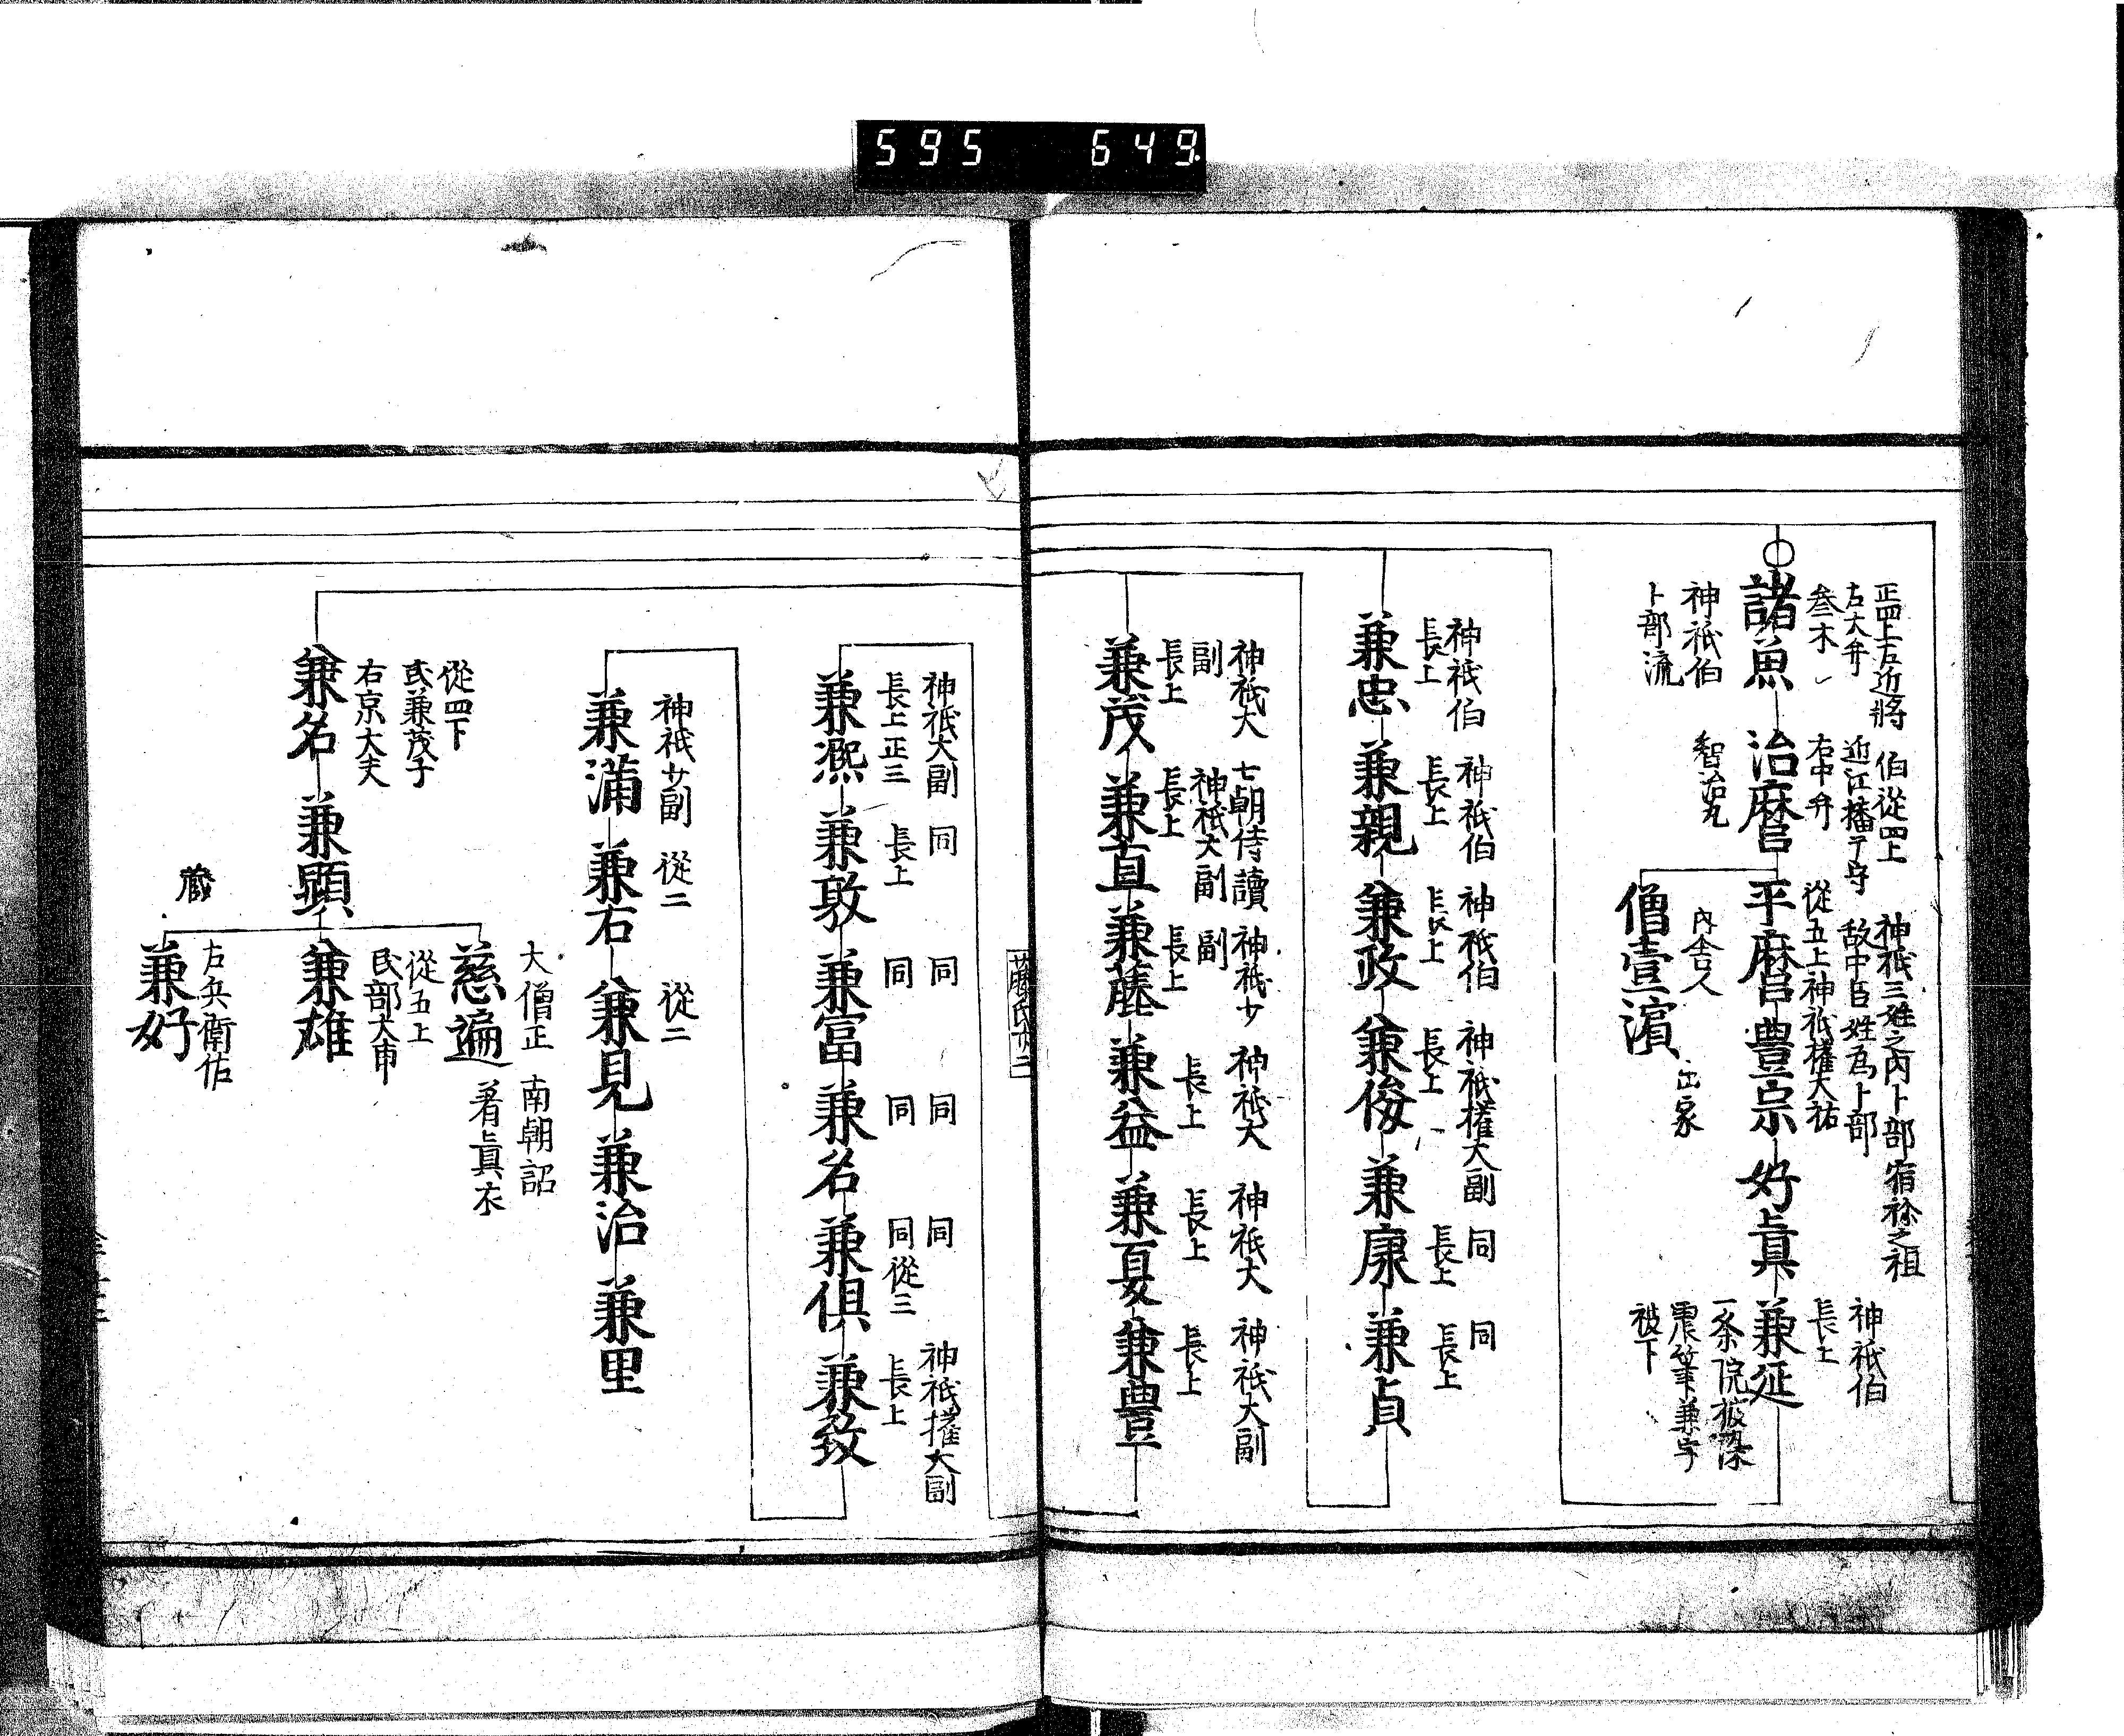 595 649
正四上左近將
左大弁
叁木
諸魚
神祇伯
卜部流
伯從四上
近江播广守
右中弁
治麿
智治丸
神祇三姓之内卜部宿祢之祖
改中臣姓為卜部
從五上神祇權大祐
平麿
豊宗
好眞
内舎人
僧壹濱
出家
神祇伯
長上
兼延
一条院被染
震筆兼字
被下
神祇伯
長上
兼忠
神祇伯
長上
兼親
神祇伯
長上
兼政
神祇權大副
長上
兼俊
同
長上
兼康
同
長上
兼貞
神祇大
副
長上
兼茂
七朝侍讀
神祇大副
長上
兼直
神祇少
副
長上
兼藤
神祇大
長上
兼益
神祇大
長上
兼夏
神祇大副
長上
兼豊
神祇大副
長上正三
兼熙
同
長上
兼敦
同
同
兼富
同
同
兼名
同
同從三
兼倶
神祇權大副
長上
兼致
神祇少副
兼満
從二
兼右
從二
兼見
兼治
兼里
從四下
或兼茂子
右京大夫
兼名
兼顕
大僧正 南朝詔
慈遍 着眞衣
從五上
民部大甫
兼雄
左兵衛佐
兼好